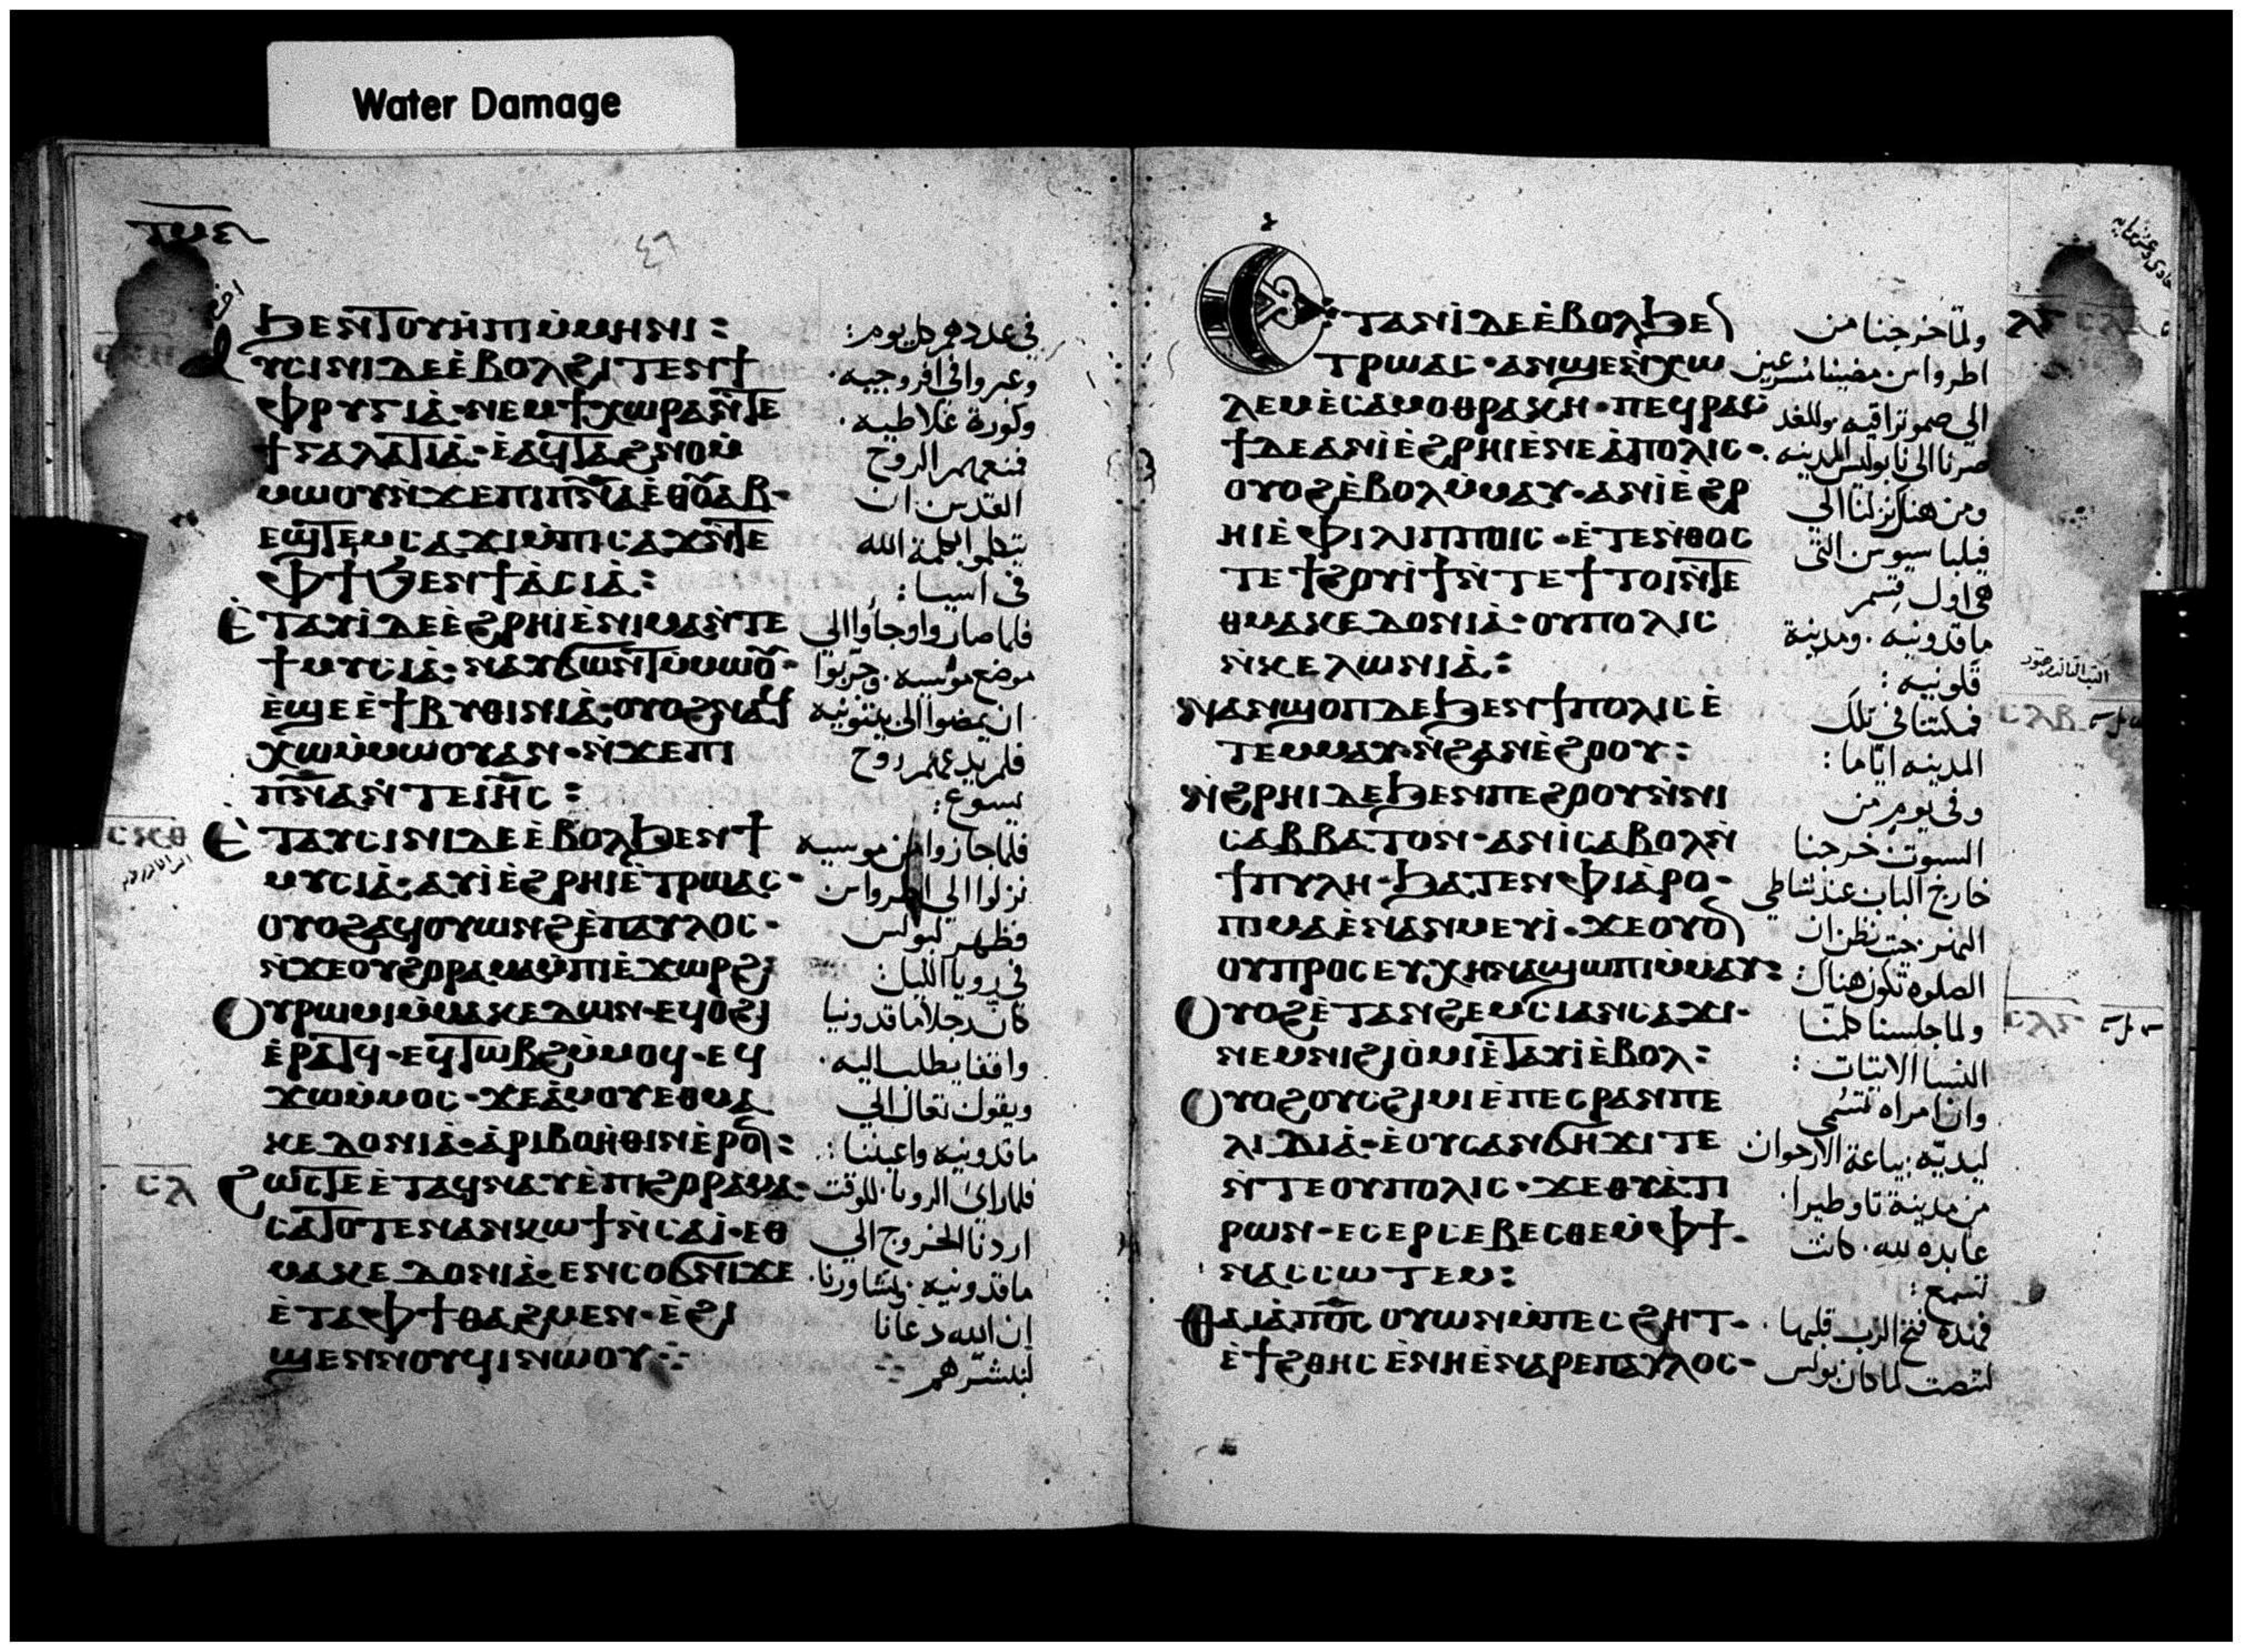 Water Damage
٤٦
Ϧⲉⲛⲧⲟⲩⲏ̀ⲡⲓⲙ̀ⲙⲏⲛⲓ:
ⲁⲩⲥⲓⲛⲓⲇⲉⲉ̀ⲃⲟⲗϩⲓⲧⲉⲛϯ
ⲫⲣⲩⲅⲓⲁ̀·ⲛⲉⲙϯⲭⲱⲣⲁⲛ̀ⲧⲉ
ϯⲅⲁⲗⲁⲧⲓⲁ̀·ⲉ̀ⲁϥⲧⲁϩⲛⲟⲙ̀
ⲙⲱⲟⲩⲛ̀ϫⲉⲡⲓⲡ̅ⲛ̅ⲁ̅ⲉ̅ⲑ̅ⲟ̅ⲩ̅ⲁ̅ⲃ̅·
ⲉϣⲧⲉⲙⲥⲁϫⲓⲙ̀ⲡⲓⲥⲁϫⲛ̀ⲧⲉ
ⲫϯϦⲉⲛϯⲁ̀ⲥⲓⲁ̀:
Ⲉ̀ⲧⲁⲩⲓ̀ⲇⲉⲉ̀ϩⲣⲏⲓⲉ̀ⲛⲓⲙⲁⲛ̀ⲧⲉ
ϯⲙⲩⲥⲓⲁ̀·ⲛⲁⲩϭⲱⲛⲧⲙ̀ⲙⲱⲟⲩ·
ⲉ̀ϣⲉⲉ̀ϯⲃⲩⲑⲓⲛⲓⲁ̀·ⲟⲩⲟϩⲛⲁϥ
ⲭⲱⲙ̀ⲙⲱⲟⲩⲁⲛ·ⲛ̀ϫⲉⲡⲓ
ⲡ̅ⲛ̅ⲁ̅ⲛ̀ⲧⲉⲓⲏ̅ⲥ̅:
Ⲉ̀ⲧⲁⲩⲥⲓⲛⲓⲇⲉⲉ̀ⲃⲟⲗϦⲉⲛϯ
ⲙⲩⲥⲓⲁ̀·ⲁⲩⲓ̀ⲉ̀ϩⲣⲏⲓⲉ̀ⲧⲣⲱⲁⲥ·
ⲟⲩⲟϩⲁϥⲟⲩⲱⲛϩⲉ̀ⲡⲁⲩⲗⲟⲥ·
ⲛ̀ϫⲉⲟⲩϩⲟⲣⲁⲙⲁⲙ̀ⲡⲓⲉ̀ϫⲱⲣϩ
Ⲟⲩⲣⲱⲙⲓⲙ̀ⲙⲁⲕⲉⲇⲱⲛ·ⲉϥⲟ̀ϩⲓ
ⲉ̀ⲣⲁⲧϥ·ⲉϥⲧⲱⲃϩⲙ̀ⲙⲟϥ·ⲉϥ
ϫⲱⲙ̀ⲙⲟⲥ·ϫⲉⲁ̀ⲙⲟⲩⲉⲑⲙⲁ
ⲕⲉⲇⲟⲛⲓⲁ̀·ⲁ̀ⲣⲓⲃⲟⲏ̀ⲑⲓⲛⲉ̀ⲣⲟⲛ:
ϩⲱⲥⲧⲉⲉ̀ⲧⲁϥⲛⲁⲩⲉ̀ⲡⲓϩⲟⲣⲁⲙⲁ·
ⲥⲁⲧⲟⲧⲉⲛⲁⲛⲕⲱϯⲛ̀ⲥⲁⲓ̀·ⲉⲑ
ⲙⲁⲕⲉⲇⲟⲛⲓⲁ̀·ⲉⲛⲥⲟϭⲛⲓϫⲉ
ⲉ̀ⲧⲁⲫϯⲑⲁϩⲙⲉⲛ·ⲉ̀ϩⲓ
ϣⲉⲛⲛⲟⲩϥⲓⲛⲱⲟⲩ
في عددهم كل يوم:
وعبروا في افروجيه·
وكورة غلاطيه·
فمنعهم الروح
القدس ان
يتكلموا بكلمة الله
في اسيا:
فلما صاروا وجاوا الي
موضع موسيه· وجربوا
ان يمضوا الي بيتونيه
فلم يدعهم روح
يسوع:
فلما جازوا من موسيه
نزلوا الي اطرواس
فظهر لبولس
في رويا الليل
كان رجلا ماقدونيا
واقفا يطلب اليه·
ويقول تعال الي
ماقدونيه واعيننا:
فلما راي الرويا· للوقت
اردنا الخروج الي
ماقدونيه·
ان الله دعانا
لنبشرهم
Ⲉⲧⲁⲛⲓ̀ⲇⲉⲉ̀ⲃⲟⲗϦⲉⲛ
ⲧⲣⲱⲁⲥ·ⲁⲛϣⲉⲛ̀ⲭⲱ
ⲗⲉⲙⲉ̀ⲥⲁⲙⲟⲑⲣⲁⲕⲏ·ⲡⲉϥⲣⲁⲥ
ϯⲇⲉⲁⲛⲓ̀ⲉ̀ϩⲣⲏⲓⲉ̀ⲛⲉⲁ̀ⲡⲟⲗⲓⲥ·
ⲟⲩⲟϩⲉ̀ⲃⲟⲗⲙ̀ⲙⲁⲩ·ⲁⲛⲓ̀ⲉ̀ϩⲣ
ⲏⲓⲉ̀ⲫⲓⲗⲓⲡⲡⲟⲓⲥ·ⲉ̀ⲧⲉⲛ̀ⲑⲟⲥ
ⲧⲉϯϩⲟⲩⲓ̀ϯⲛ̀ⲧⲉϯⲧⲟⲓⲛ̀ⲧⲉ
ⲑⲙⲁⲕⲉⲇⲟⲛⲓⲁ̀·ⲟⲩⲡⲟⲗⲓⲥ
ⲛ̀ⲕⲉⲗⲱⲛⲓⲁ̀:
ⲚⲁⲛϣⲟⲡⲇⲉϦⲉⲛϯⲡⲟⲗⲓⲥⲉ̀
ⲧⲉⲙⲙⲁⲩ·ⲛ̀ϩⲁⲛⲉ̀ϩⲟⲟⲩ:
Ⲛ̀ϩⲣⲏⲓⲇⲉϦⲉⲛⲡⲉϩⲟⲟⲩⲛ̀ⲛⲓ
ⲥⲁⲃⲃⲁⲧⲟⲛ·ⲁⲛⲓ̀ⲥⲁⲃⲟⲗⲛ̀
ϯⲡⲩⲗⲏ·Ϧⲁⲧⲉⲛⲫⲓⲁ̀ⲣⲟ·
ⲡⲓⲙⲁⲉ̀ⲛⲁⲛⲙⲉⲩⲓ̀·ϫⲉⲟⲩⲟⲛ
ⲟⲩⲡⲣⲟⲥⲉⲩⲭⲏⲛⲁϣⲱⲡⲓⲙ̀ⲙⲁⲩ:
Ⲟⲩⲟϩⲉ̀ⲧⲁⲛϩⲉⲙⲥⲓⲁⲛⲥⲁϫⲓ·
ⲛⲉⲙⲛⲓϩⲓⲟ̀ⲙⲓⲉ̀ⲧⲁⲩⲓ̀ⲉ̀ⲃⲟⲗ:
Ⲟⲩⲟϩⲟⲩⲥϩⲓⲙⲓⲉ̀ⲡⲉⲥⲣⲁⲛⲡⲉ
ⲗⲓⲇⲓⲁ̀·ⲉ̀ⲟⲩⲥⲁⲛϭⲏϫⲓⲧⲉ
ⲛ̀ⲧⲉⲟⲩⲡⲟⲗⲓⲥ·ϫⲉⲑⲩⲁ̀ⲧⲓ
ⲣⲱⲛ·ⲉⲥⲉⲣⲥⲉⲃⲉⲥⲑⲉⲙ̀ⲫϯ·
ⲛⲁⲥⲥⲱⲧⲉⲙ:
Ⲑⲁⲓⲁ̀ⲡ̅ⲟ̅ⲥ̅ⲟⲩⲱⲛⲙ̀ⲡⲉⲥϩⲏⲧ·
ⲉ̀ϯϩⲑⲏⲥⲉ̀ⲛⲏⲉ̀ⲛⲁⲣⲉⲡⲁⲩⲗⲟⲥ·
ولما خرجنا من
اطرواس مضينا مسرعين
الي صموتراقيه وللغد
صرنا الي نابوليس المدينه
ومن هناك نزلنا الي
فيلباسيوس التي
هي اول قسم
ماقدونيه· ومدينة
قلونيه:
فمكثنا في تلك
المدينه اياما:
وفي يوم من
السبوت خرجنا
خارج الباب عند شاطي
النهر· حيث نظن ان
الصلوه تكون هناك:
ولما جلسنا كلمنا
النسا الاتيات:
وان امراه تسمي
ليديه· بياعة الارجوان
من مدينة تاوطيرا·
عابده لله· كانت
تسمع:
فهذه فتح الرب قلبها·
لتنصت لما كان بولس